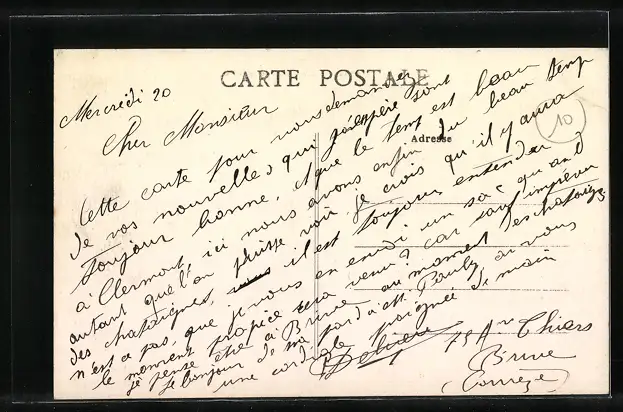 CARTE POSTALE
Adresse
10
Mercredi 20
Cher Monsieur
Cette carte pour vous demander
de vos nouvelles qui j'espère sont
toujour bonne, et que le temp est beau
à Clermont, ici nous avons enfin du beau temp
autant que l'on puisse voir, je crois qu'il y aura
des chataignes, il est toujour entendu
n'est a pas, que je vous en envoi un sac quand
le moment propice sera venu? car sauf imprévu
je pense être à Brive au moment des chataignes
le bonjour de ma part à Mr Pouly, à vous
une cordiale poignée de main
75 Av Thiers
Brive
(Corrèze)